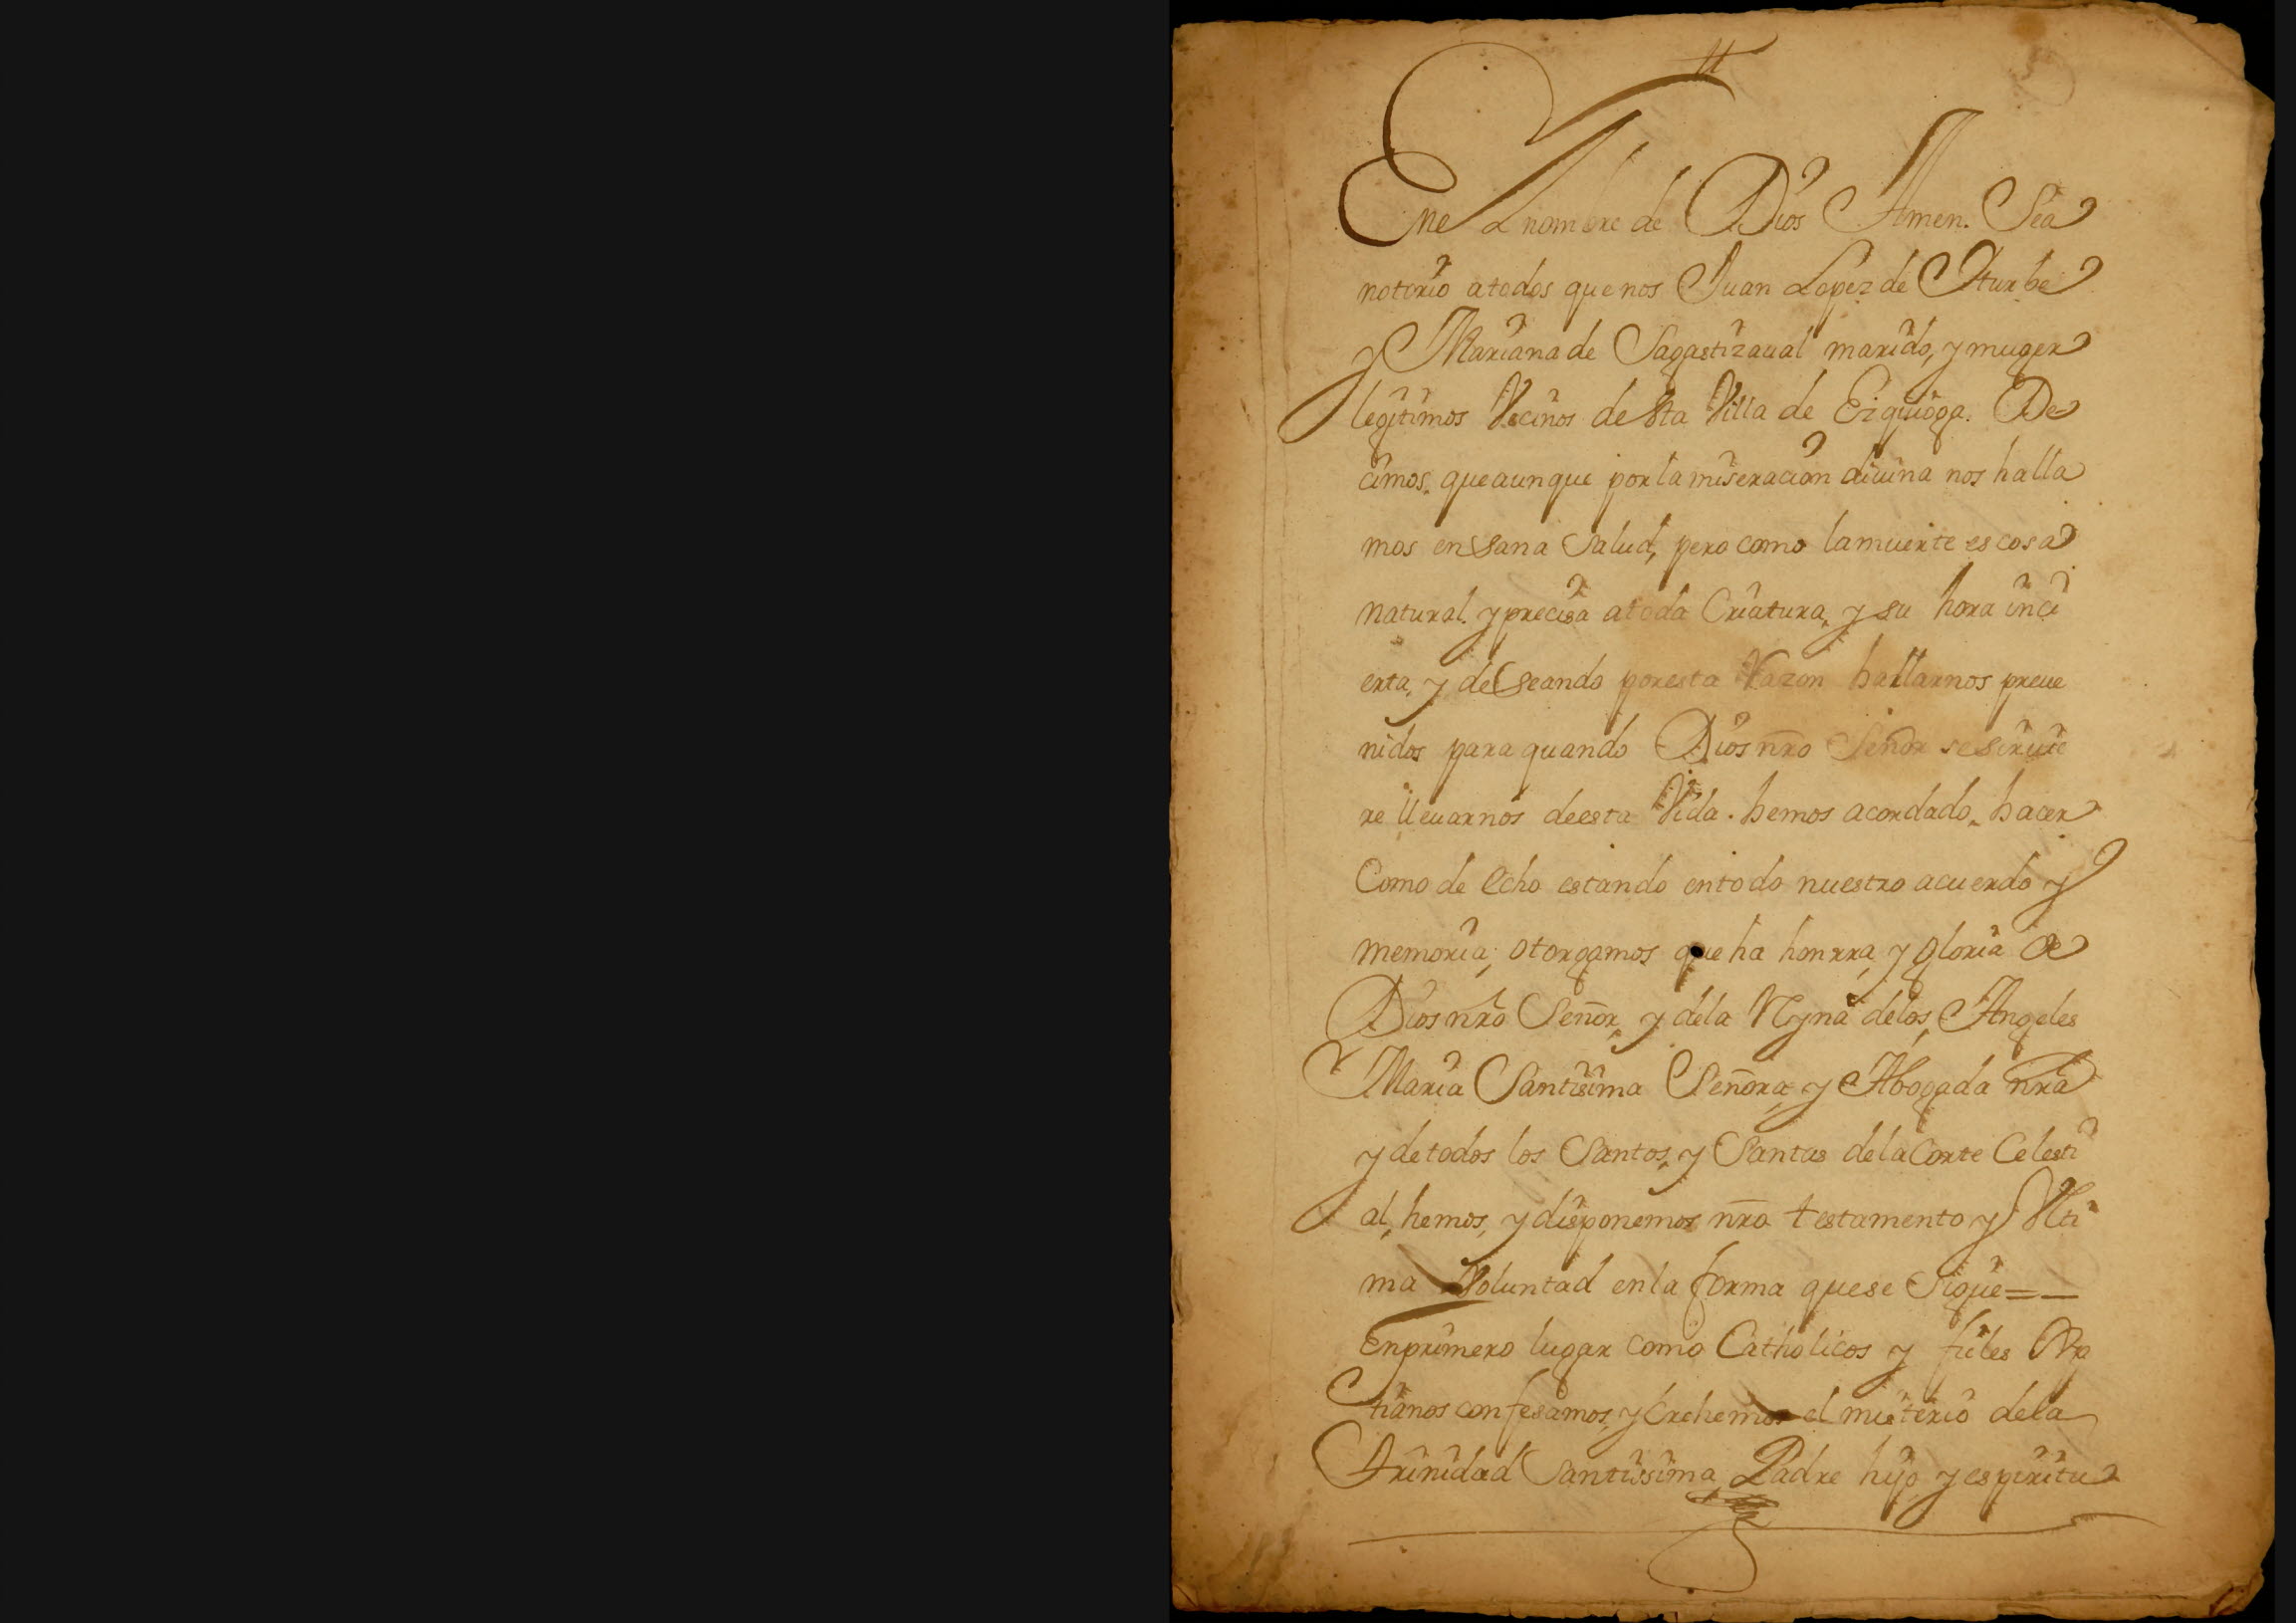 Enel nombre de Dios Amen. Sea
notorio atodos que nos Juan Lopez de Iturbe
y Mariana de Sagastizaual marido, y muger
legitimos Vecinos desta Villa de Eizquioga. De
cimos, queaunque porla miseracion diuina nos halla
mos en sana salud, pero como lamuerte es cosa
natural. y precisa atoda Criatura, y su hora inci
erta, y desseando poresta Razon hallarnos preue
nidos para quando Dios nro Señor se siruie
re lleuarnos deesta Vida. hemos acordado, hacer
Como de echo estando entodo nuestro acuerdo y
memoria, otorgamos que ha honrra, y gloria de
Dios nro Señor, y dela Reyna delos Angeles
Maria Santisima Señora, y Abogada nra
y detodos los Santos, y Santas dela Corte Celesti
al, hemos, y disponemos nro testamento y Ulti
ma Voluntad enla forma quese sigue = —
Enprimero lugar como Catholicos y fieles Xp
tianos confesamos, y Crehemos el misterio dela
Trinidad Santissima Padre hijo y espiritu